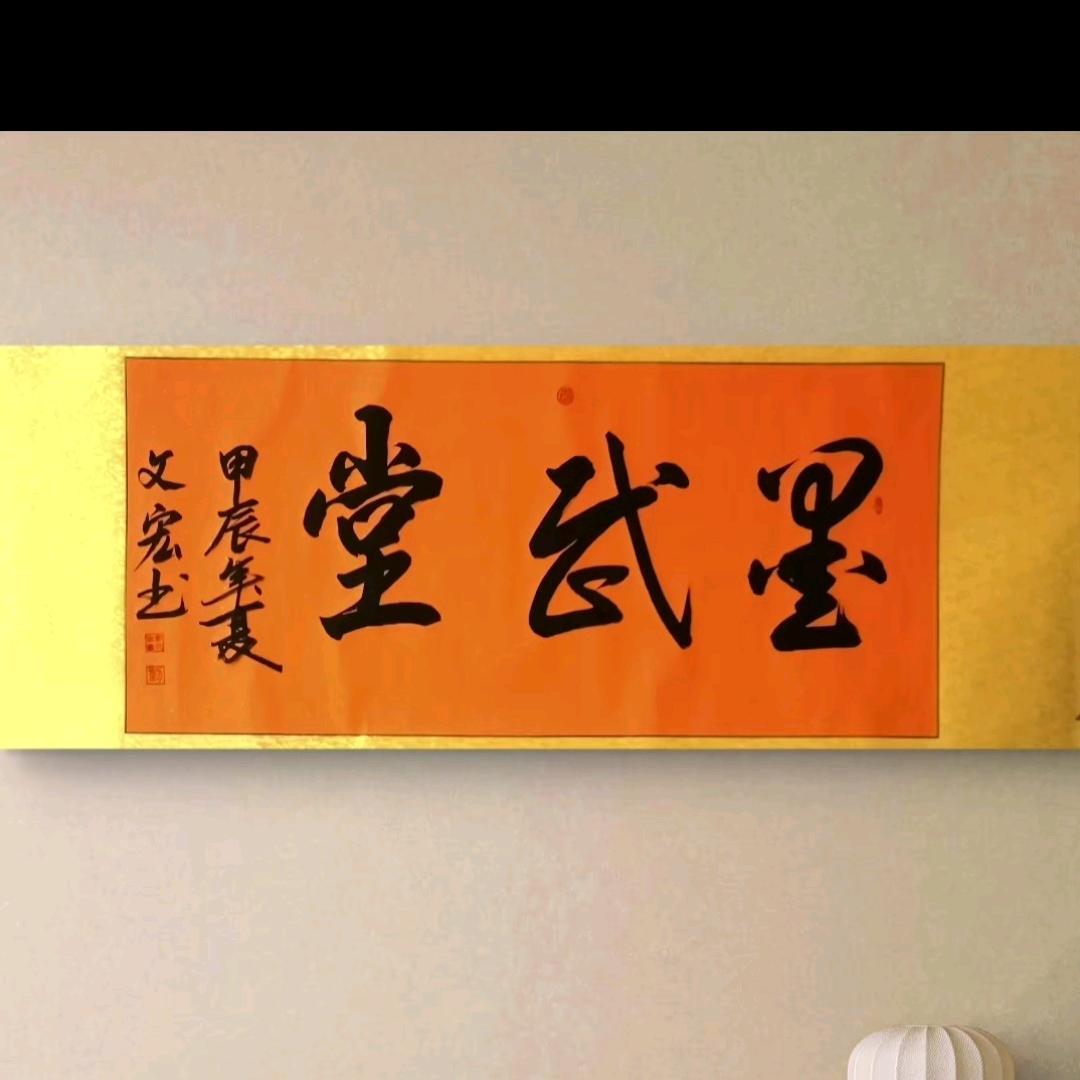 墨武堂
甲辰年夏
文宏书